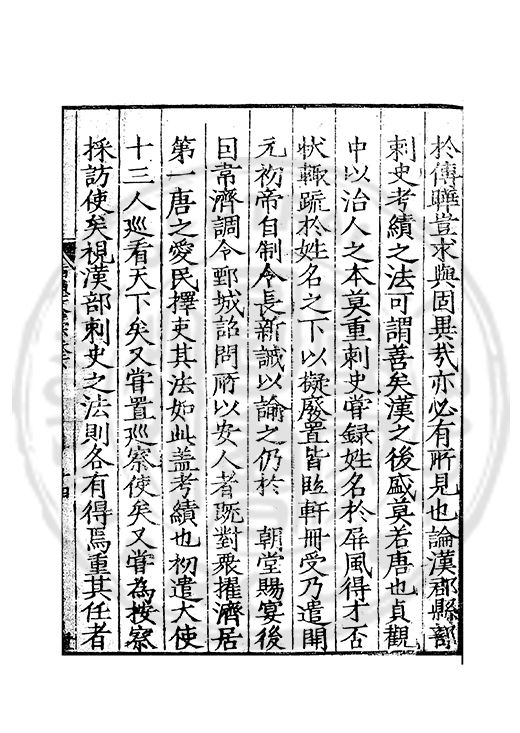 於傳雖豈求與固異哉亦必有所見也論漢郡縣部
刺史考績之法可謂善矣漢之後盛莫若唐也貞觀
中以治人之本莫重刺史甞録姓名於屏風得才否
状輙䟽於姓名之下以擬廢置皆臨軒冊受乃遣開
元初帝自制令長新誡以諭之仍於 朝堂賜宴後
囙常濟調令鄄城詔問所以安人者既對衆擢濟居
第一唐之愛民擇吏其法如此盖考績也初遣大使
十三人巡看天下矣又甞置巡察使矣又甞為按察
採訪使矣視漢部刺史之法則各有得焉重其任者